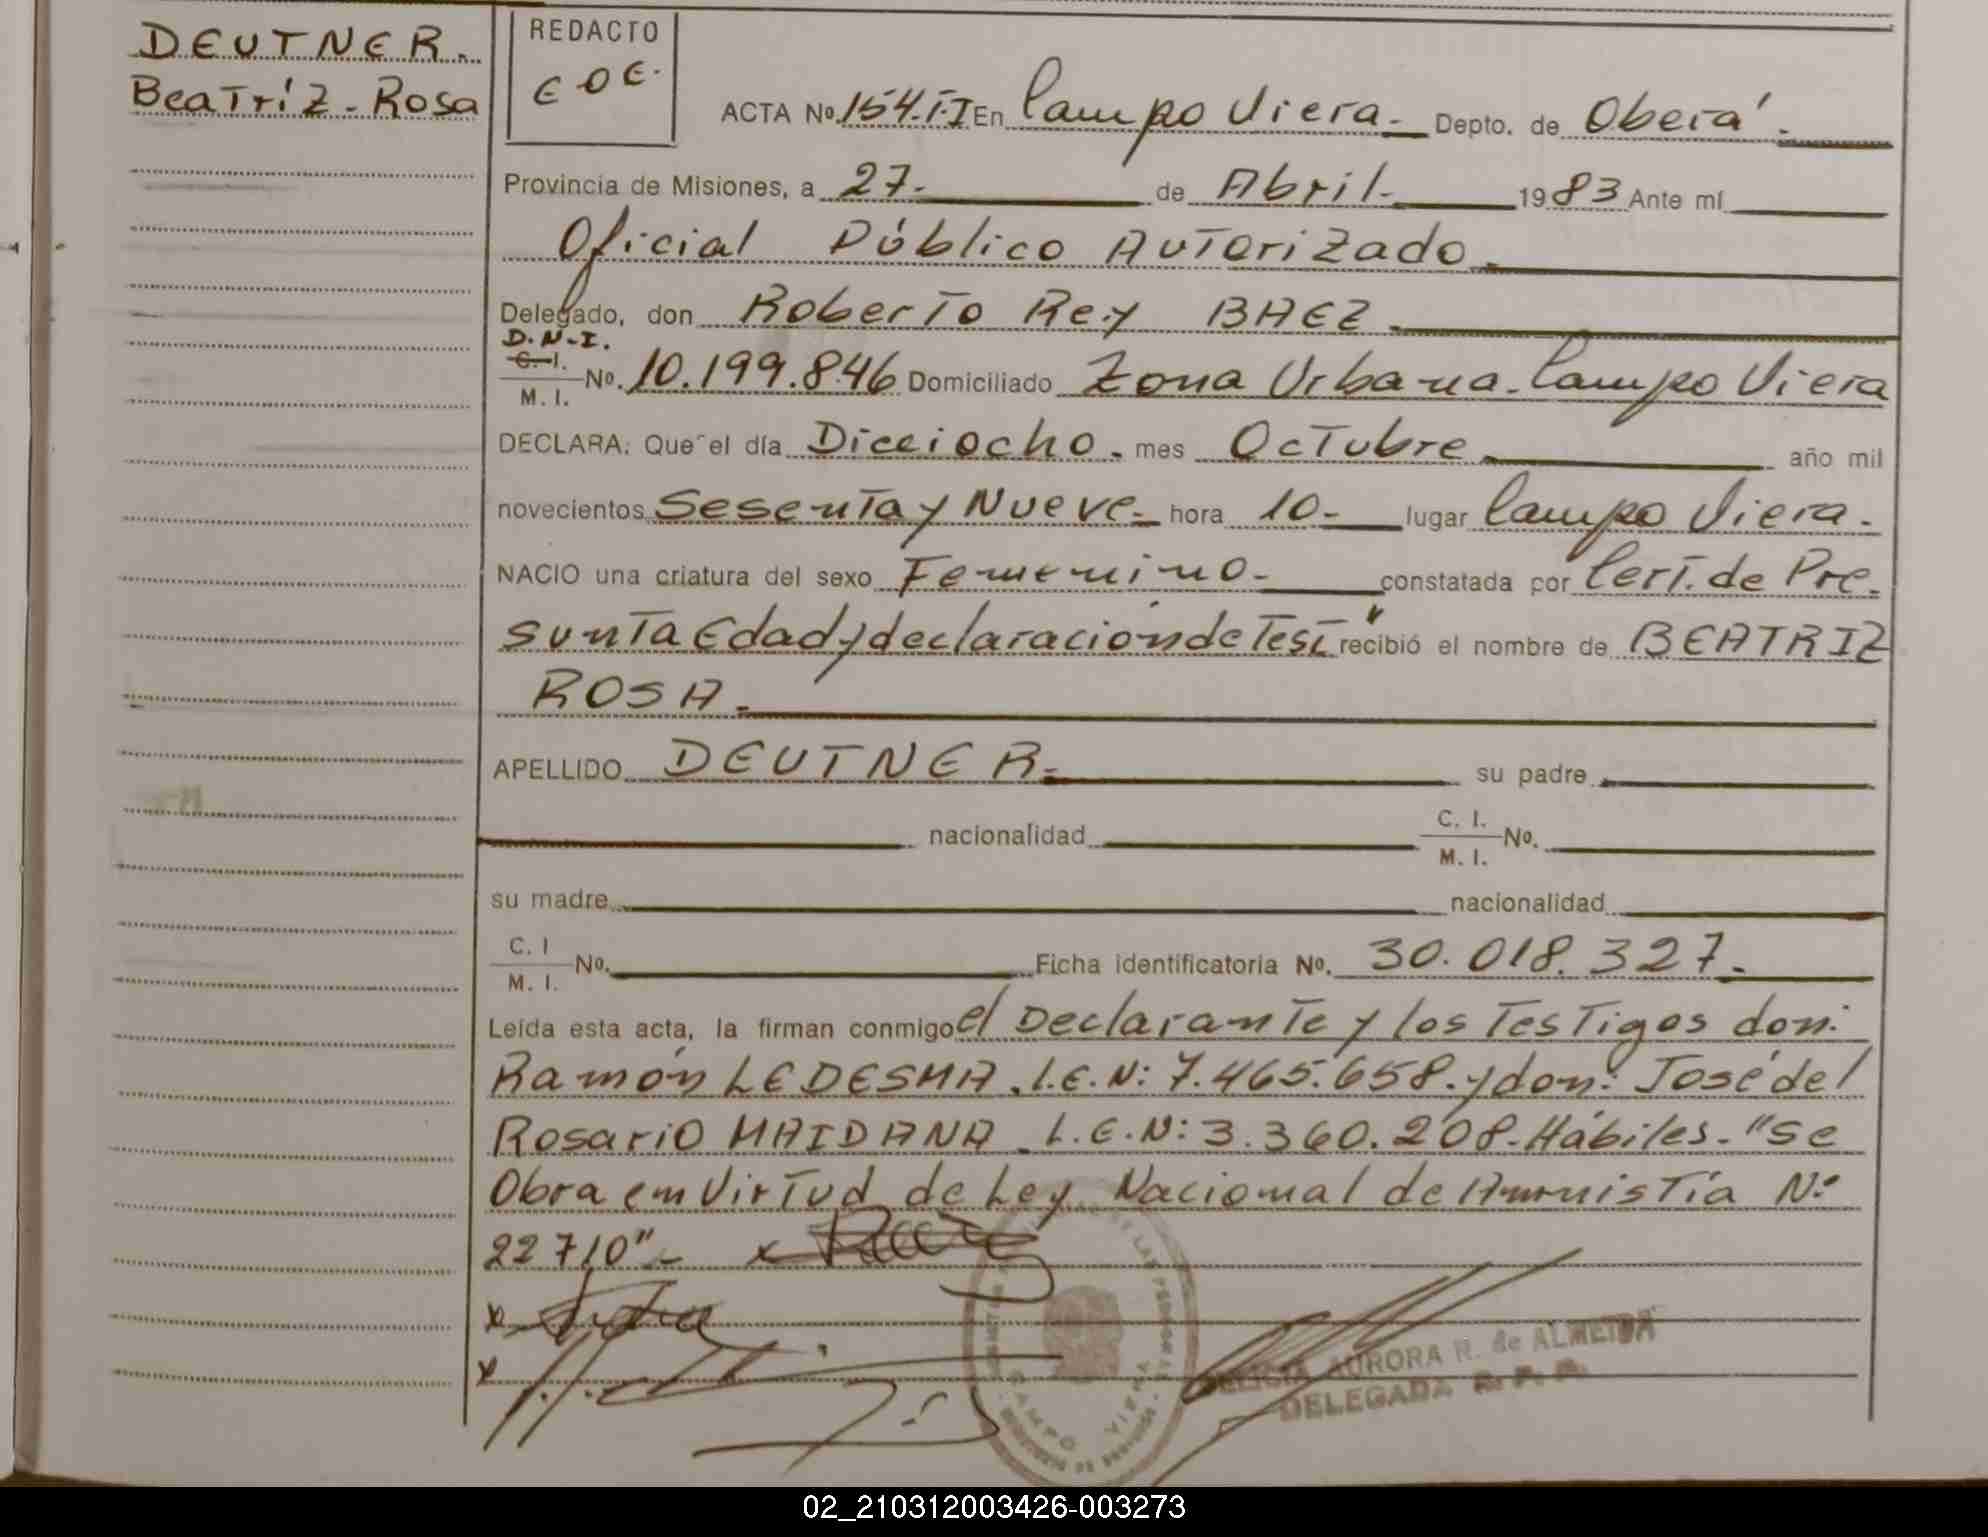 DEUTNER.
Beatríz - Rosa
REDACTO
EOE.
ACTA Nº 154. T-I En Campo Viera.- Depto. de Oberá.-
Provincia de Misiones, a 27.- de Abril.- 1983 Ante mí
Oficial Público Autorizado.-
Delegado, don Roberto Rey BAEZ.-
D.N.I.
C. I.
M. I.
Nº. 10.199.846 Domiciliado Zona Urbana - Campo Viera
DECLARA: Que el día Dieciocho. mes Octubre.- año mil
novecientos Sesenta y Nueve.- hora 10.- lugar Campo Viera.-
NACIO una criatura del sexo Femenino.- constatada por Cert. de Pre-
sunta Edad y declaración de Test" recibió el nombre de BEATRIZ
ROSA.-
APELLIDO DEUTNER.- su padre
nacionalidad C. I. M. I. Nº.
su madre nacionalidad
C. I M. I. Nº. Ficha identificatoria Nº. 30.018.327.-
Leída esta acta, la firman conmigo el Declarante y los Testigos don:
Ramón LEDESMA. L.E.N: 7.465.658. y don: José del
Rosario MAIDANA. L.E.N: 3.360.208- Hábiles. "Se
Obra em Virtud de Ley Nacional de Amnistía Nº
22710".-
x
x
x
CAMPO VIERA
AURORA R. de ALMEIDA
DELEGADA R. P. P.
02_210312003426-003273